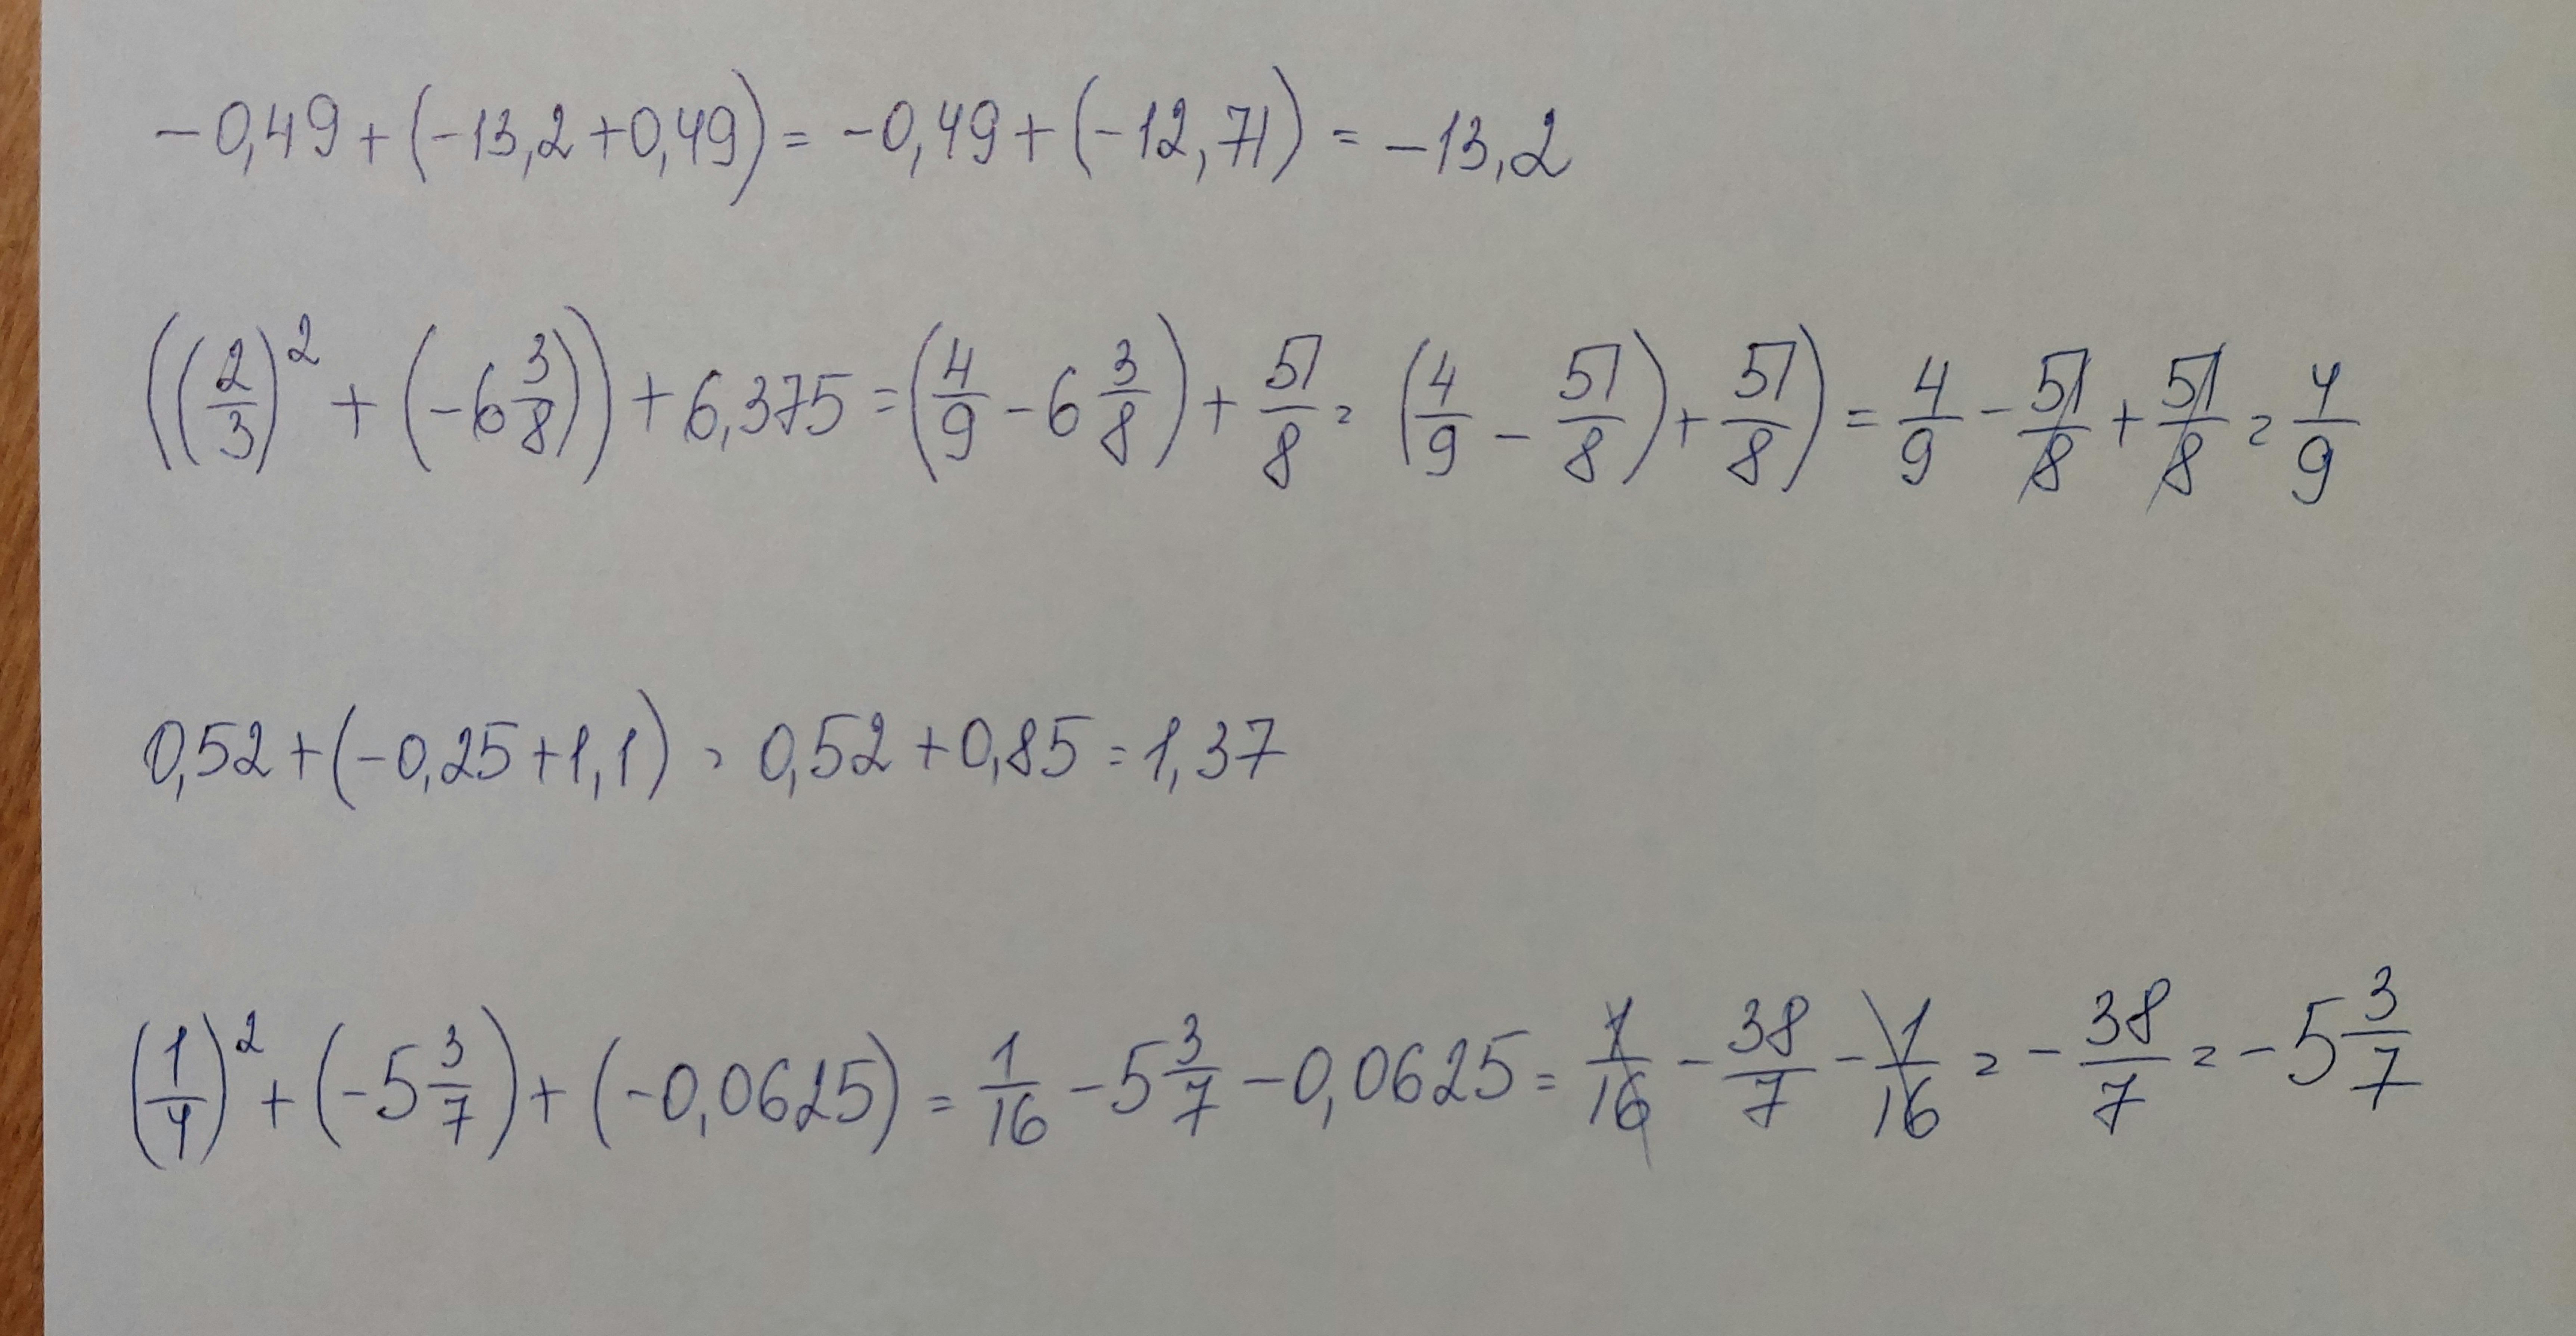 -0,49+(-13,2+0,49)=-0,49+(-12,71)=-13,2
((2/3)²+(-6 3/8))+6,375=(4/9-6 3/8)+51/8=(4/9-51/8)+51/8)=4/9-51/8+51/8=4/9
0,52+(-0,25+1,1)=0,52+0,85=1,37
(1/4)²+(-5 3/7)+(-0,0625)=1/16-5 3/7-0,0625=1/16-38/7-1/16=-38/7=-5 3/7